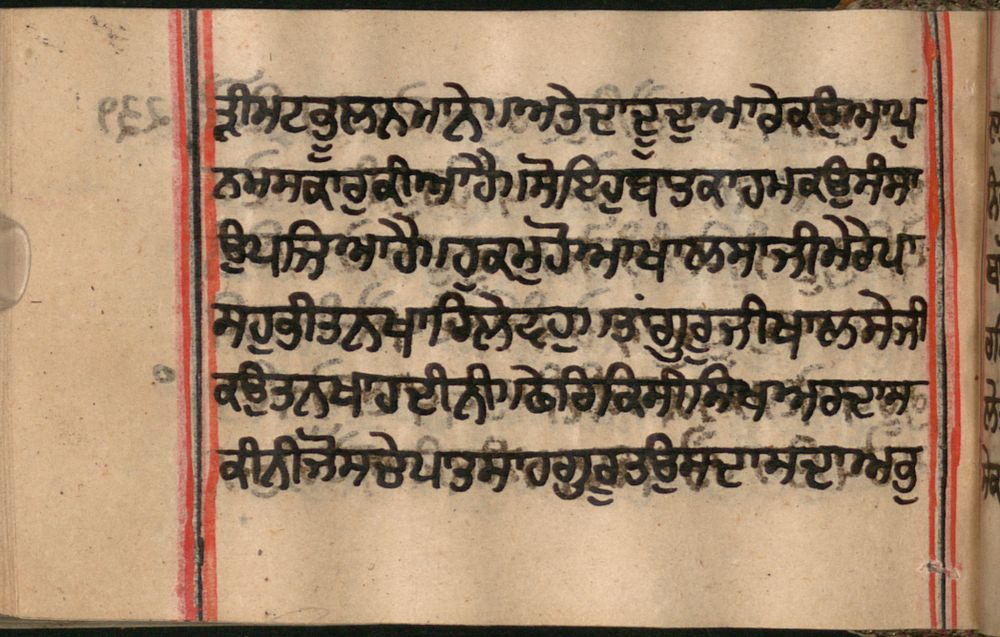 ੜੀਮਟਭੂਲਨਮਾਨੇ॥ਅਤੇਦਾਦੂਦੁਆਰੇਕਉਆਪ
ਨਮਸਕਾਰੁਕੀਆਹੈ॥ਸੋਇਹੁਬਾਤਕਾਹਮਕਉਸੰਸਾ
ਉਪਜਿਆਹੈ॥ਹੁਕਮੁਹੋਆਖਾਲਸਾਜੀਮੇਰੇਪਾ
ਸਹੁਭੀਤਨਖਾਹਿਲੇਵਹੁ॥ਤਾਂਗੁਰੁਜੀਖਾਲਸੇਜੀ
ਕਉਤਨਖਾਹਦੀਨੀ॥ਫੇਰਿਕਿਸੀਸਿਖਅਰਦਾਸ
ਕੀਨੀਜੋਸਚੇਪਾਤਸਾਹਗੁਰੂਤਉਸਦਾਸਦਾਅਭੁ